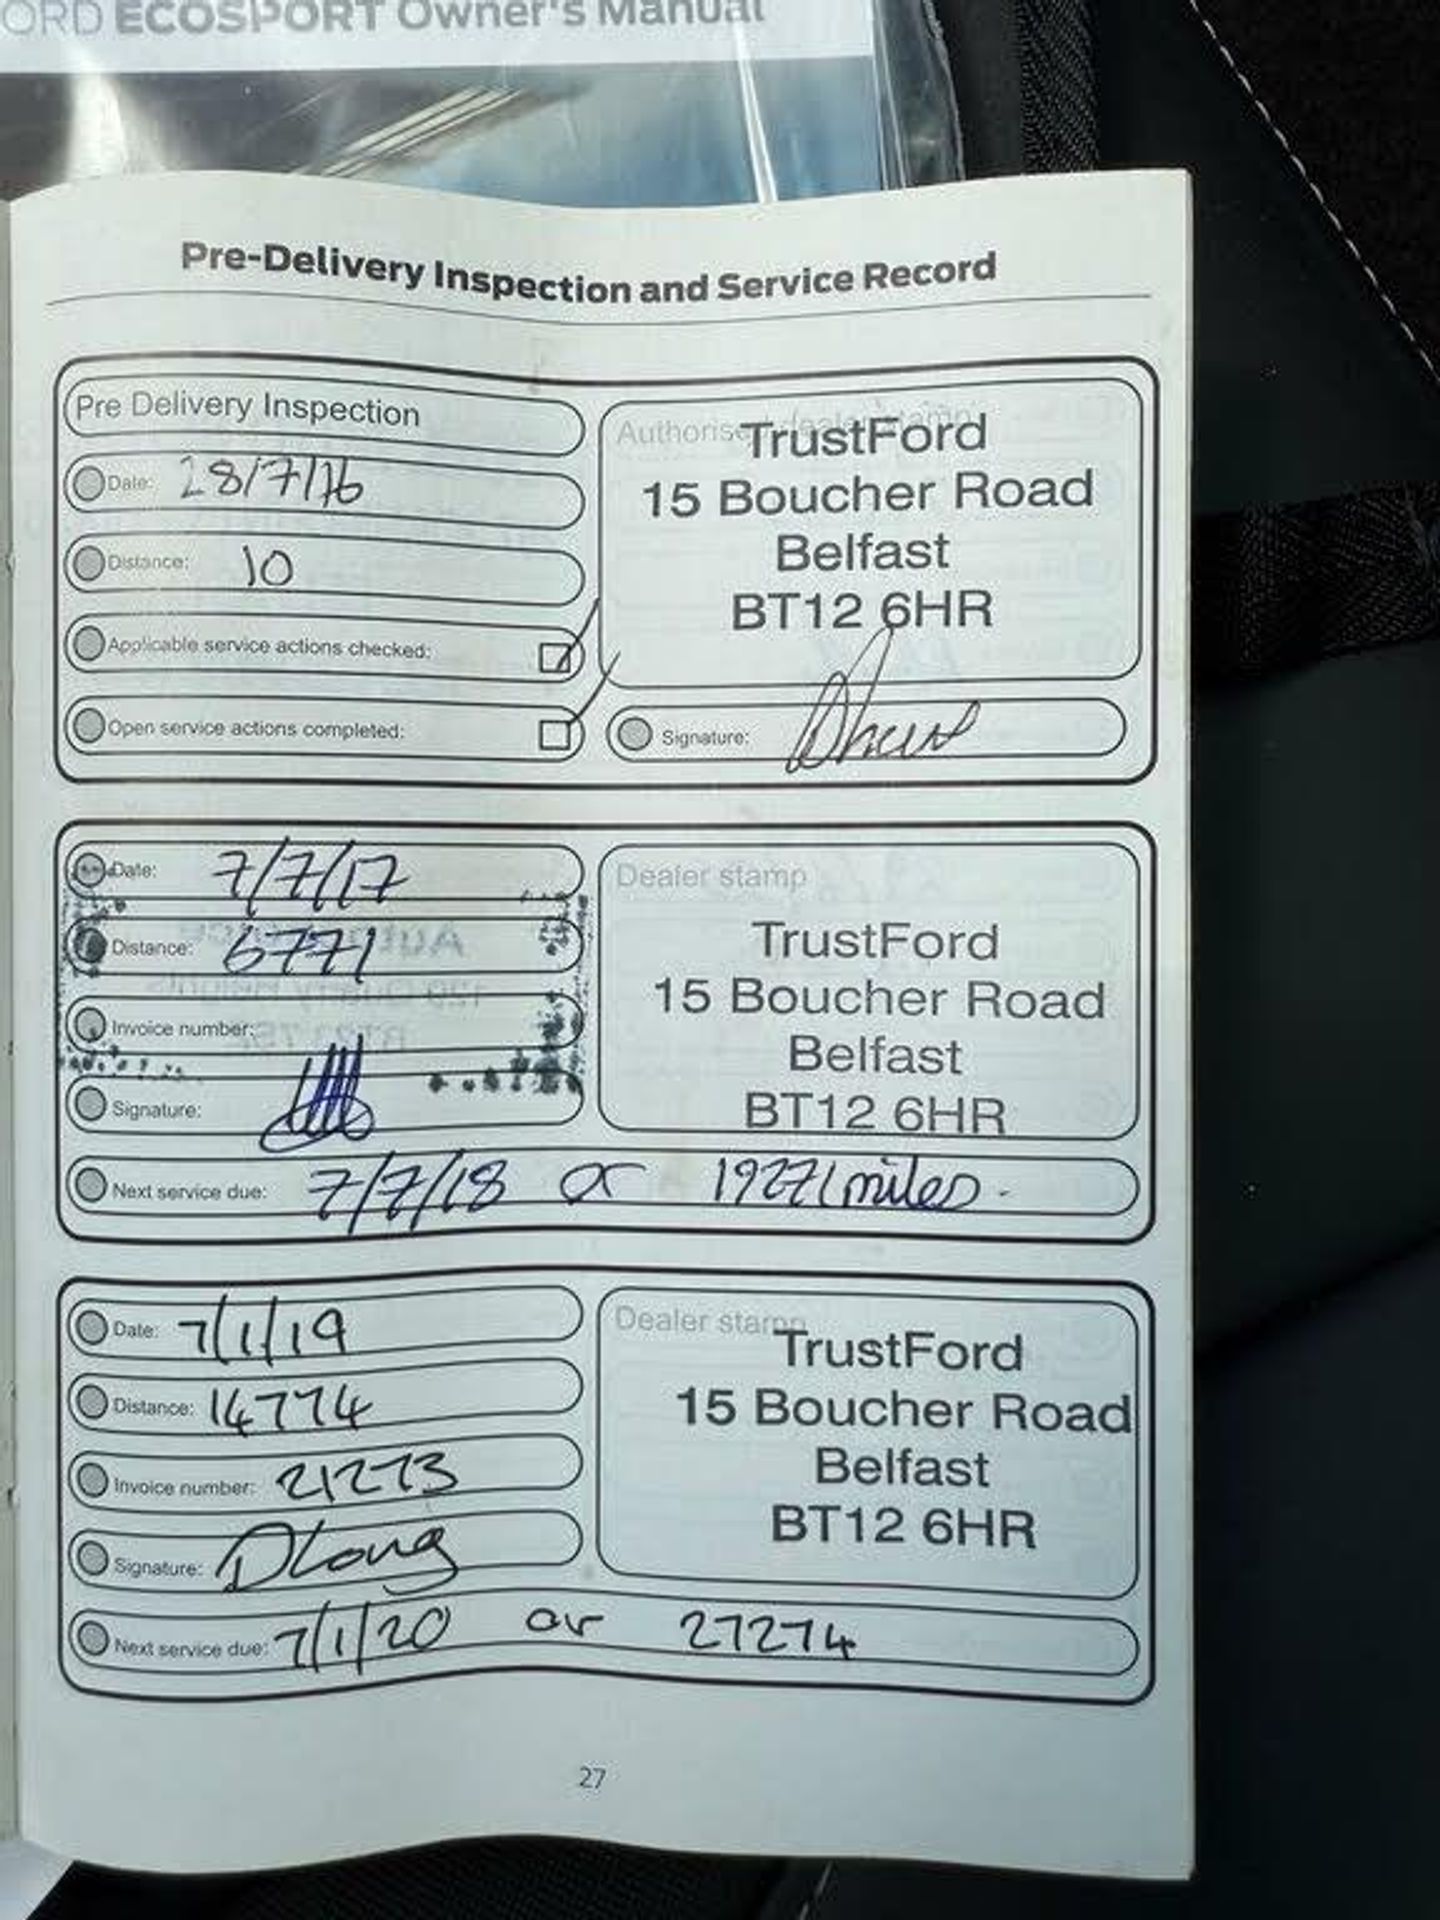 ORD ECOSPORT Owner's Manual
Pre-Delivery Inspection and Service Record
Pre Delivery Inspection
Date: 28/7/16
Distance: 10
Applicable service actions checked:
Open service actions completed:
Authorised dealer stamp
TrustFord
15 Boucher Road
Belfast
BT12 6HR
Signature:
Date: 7/7/17
Distance: 6771
Invoice number:
Signature:
Dealer stamp
TrustFord
15 Boucher Road
Belfast
BT12 6HR
Next service due: 7/7/18 or 19271 miles.
Date: 7/1/19
Distance: 14774
Invoice number: 21273
Signature: DLong
Dealer stamp
TrustFord
15 Boucher Road
Belfast
BT12 6HR
Next service due: 7/1/20 or 27274
27